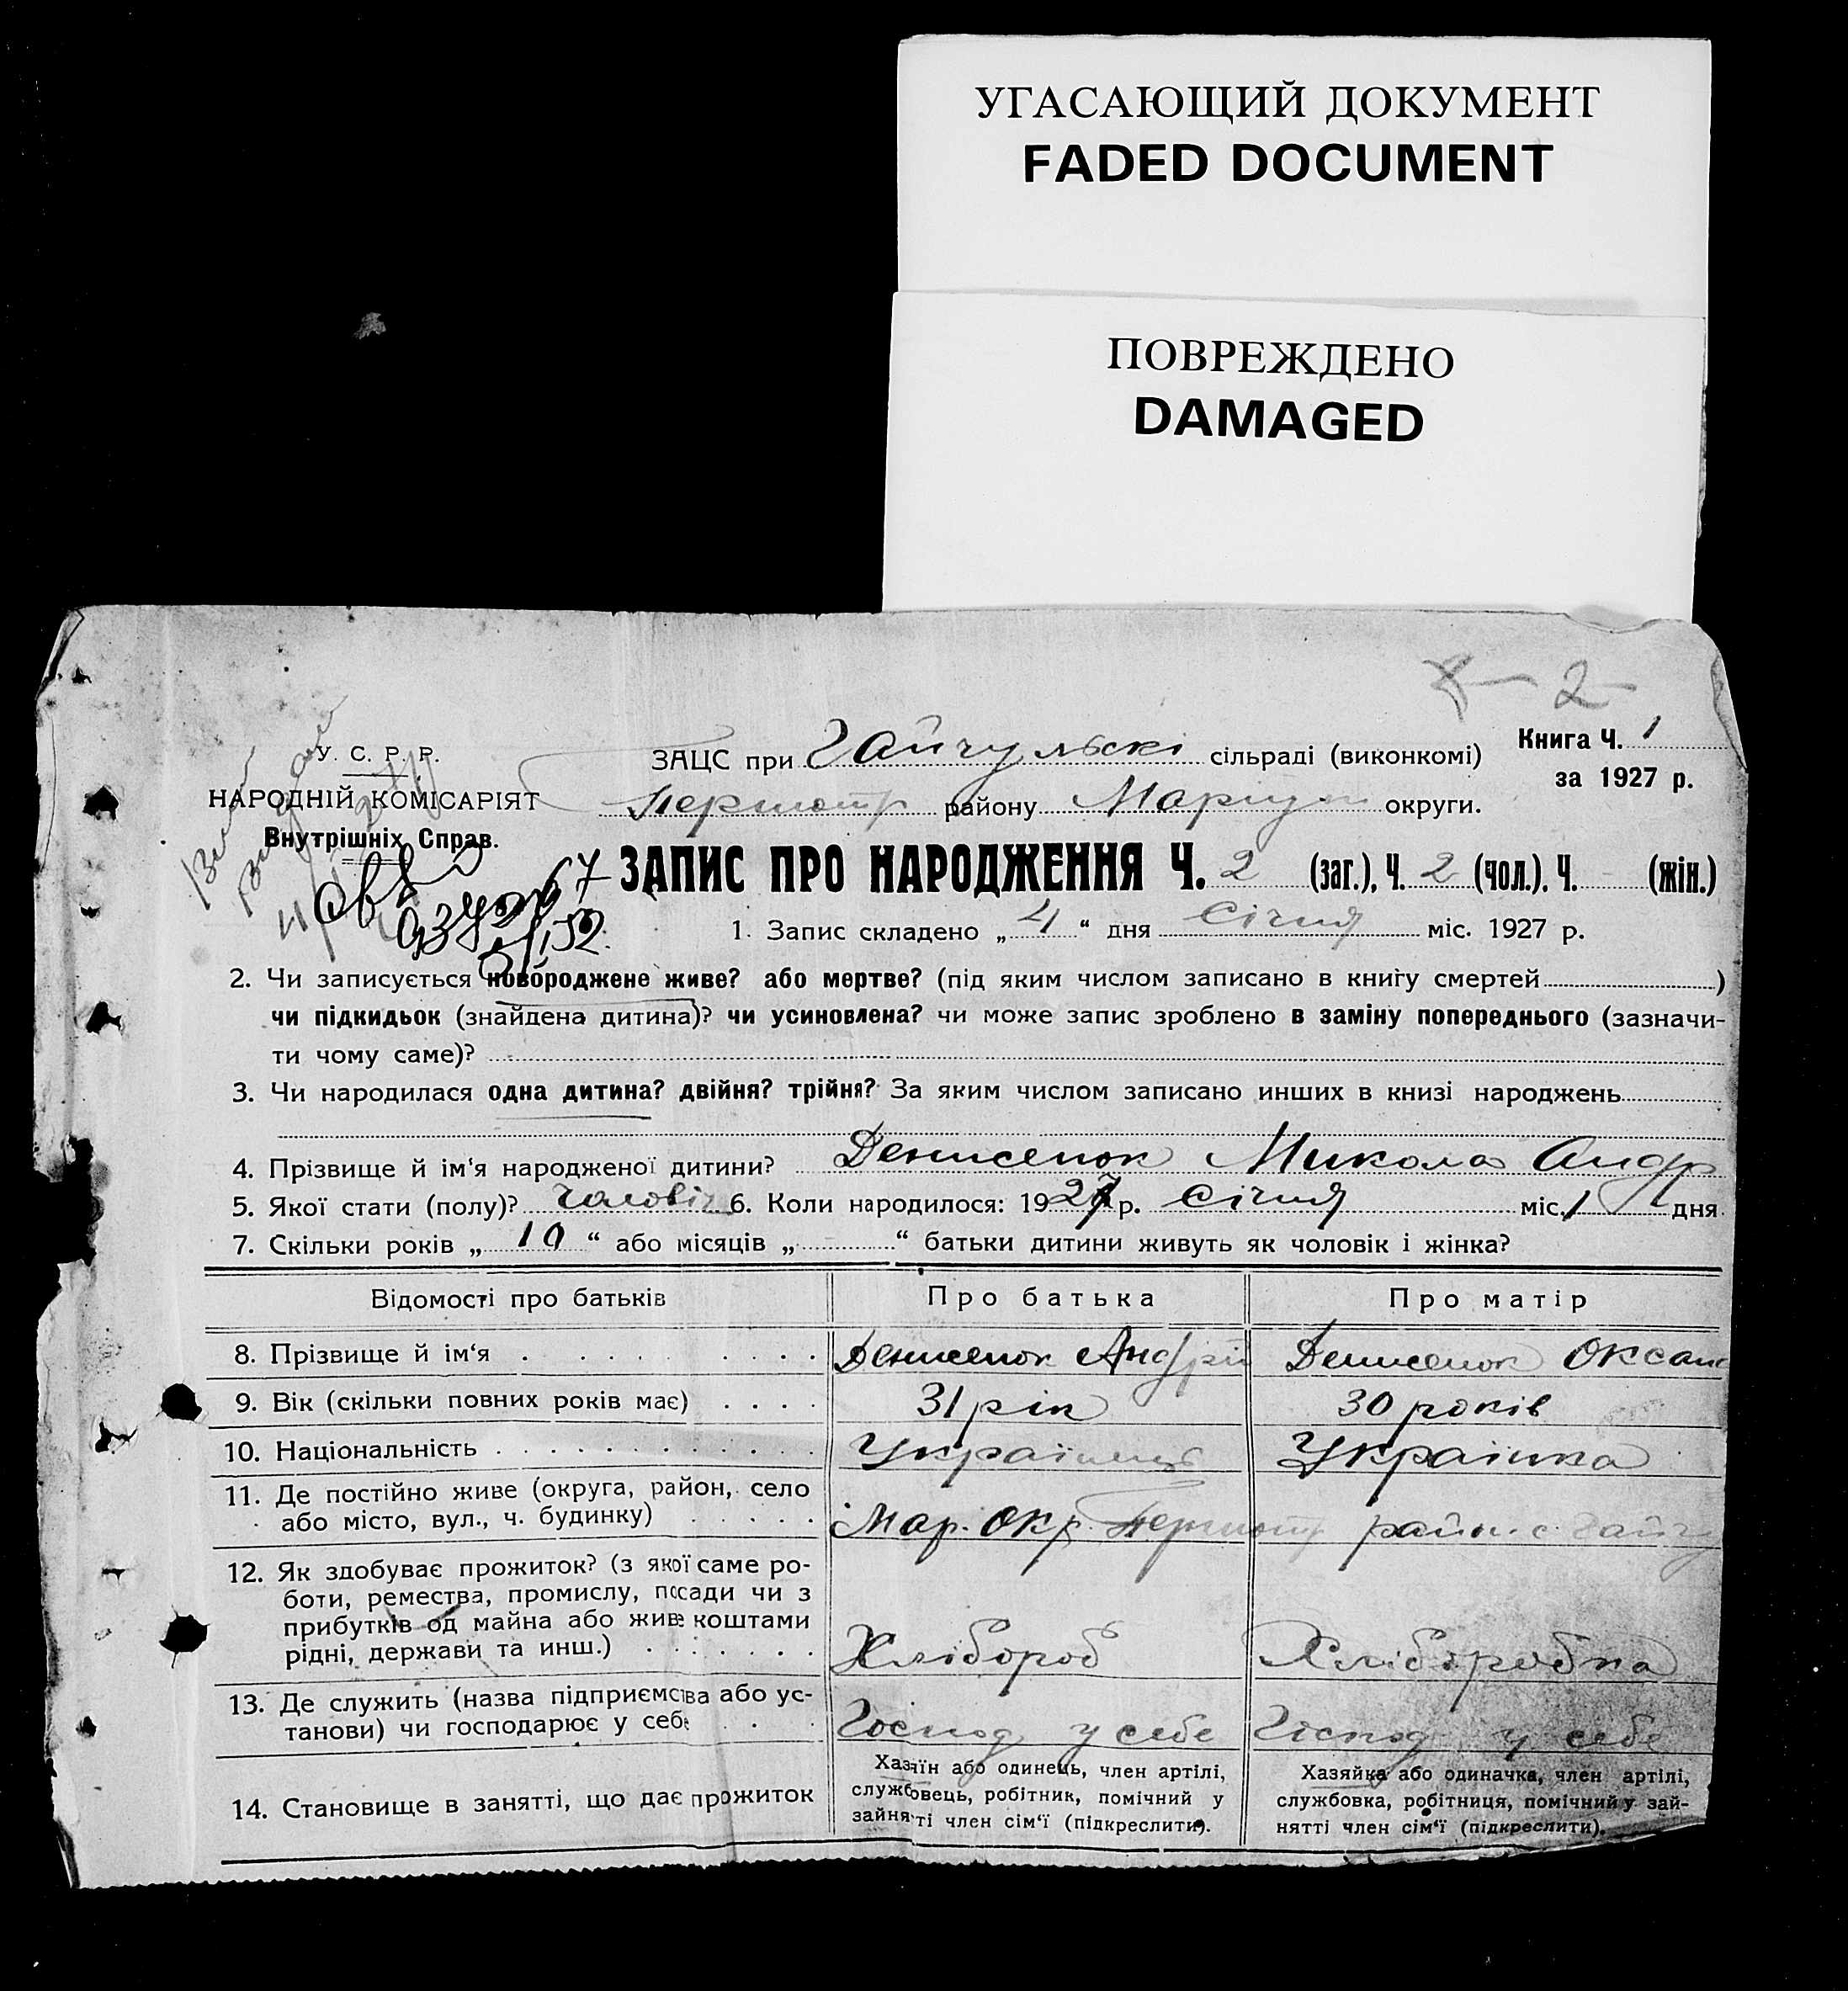 УГАСАЮЩИЙ ДОКУМЕНТ
FADED DOCUMENT
ПОВРЕЖДЕНО
DAMAGED
2
У. С. Р. Р.
НАРОДНІЙ КОМІСАРІЯТ
Внутрішніх Справ.
ЗАЦС при Гайчульскі сільраді (виконкомі)
Книга Ч. 1
за 1927 р.
району округи.
ЗАПИС ПРО НАРОДЖЕННЯ Ч. 2 (заг.), Ч. 2 (чол.). Ч. - (жін.)
1. Запис складено „ 4 “ дня Січня міс. 1927 р.
2. Чи записується новороджене живе? або мертве? (під яким числом записано в книгу смертей )
чи підкидьок (знайдена дитина)? чи усиновлена? чи може запис зроблено в заміну попереднього (зазначи-
ти чому саме)?
3. Чи народилася одна дитина? двійня? трійня? За яким числом записано инших в книзі народжень
4. Прізвище й ім‘я народженої дитини? Денисенок Микола Андр
5. Якої стати (полу)? Чоловіч 6. Коли народилося: 1927 р. Січня міс. 1 дня
7. Скільки років „ 10 “ або місяців „ “ батьки дитини живуть як чоловік і жінка?
Відомості про батьків
Про батька
Про матір
8. Прізвище й ім‘я Денисенок Андрій Денисенок Оксана
9. Вік (скільки повних років має) 31 рік 30 років
10. Національність Українець Українка
11. Де постійно живе (округа, район, село
або місто, вул., ч. будинку) Мар. Окр. район. с. Гайчу
12. Як здобуває прожиток? (з якої саме ро-
боти, ремества, промислу, посади чи з
прибутків од майна або живе коштами
рідні, держави та инш.) Хлібороб Хлібробка
13. Де служить (назва підприємства або ус-
танови) чи господарює у себе Господ у себе Господ у себе
14. Становище в занятті, що дає прожиток
Хазяїн або одинець, член артілі,
службовець, робітник, помічний у
занятті член сім‘ї (підкреслити).
Хазяйка або одиначка, член артілі,
службовка, робітниця, помічний у зай-
нятті член сім‘ї (підкреслити).